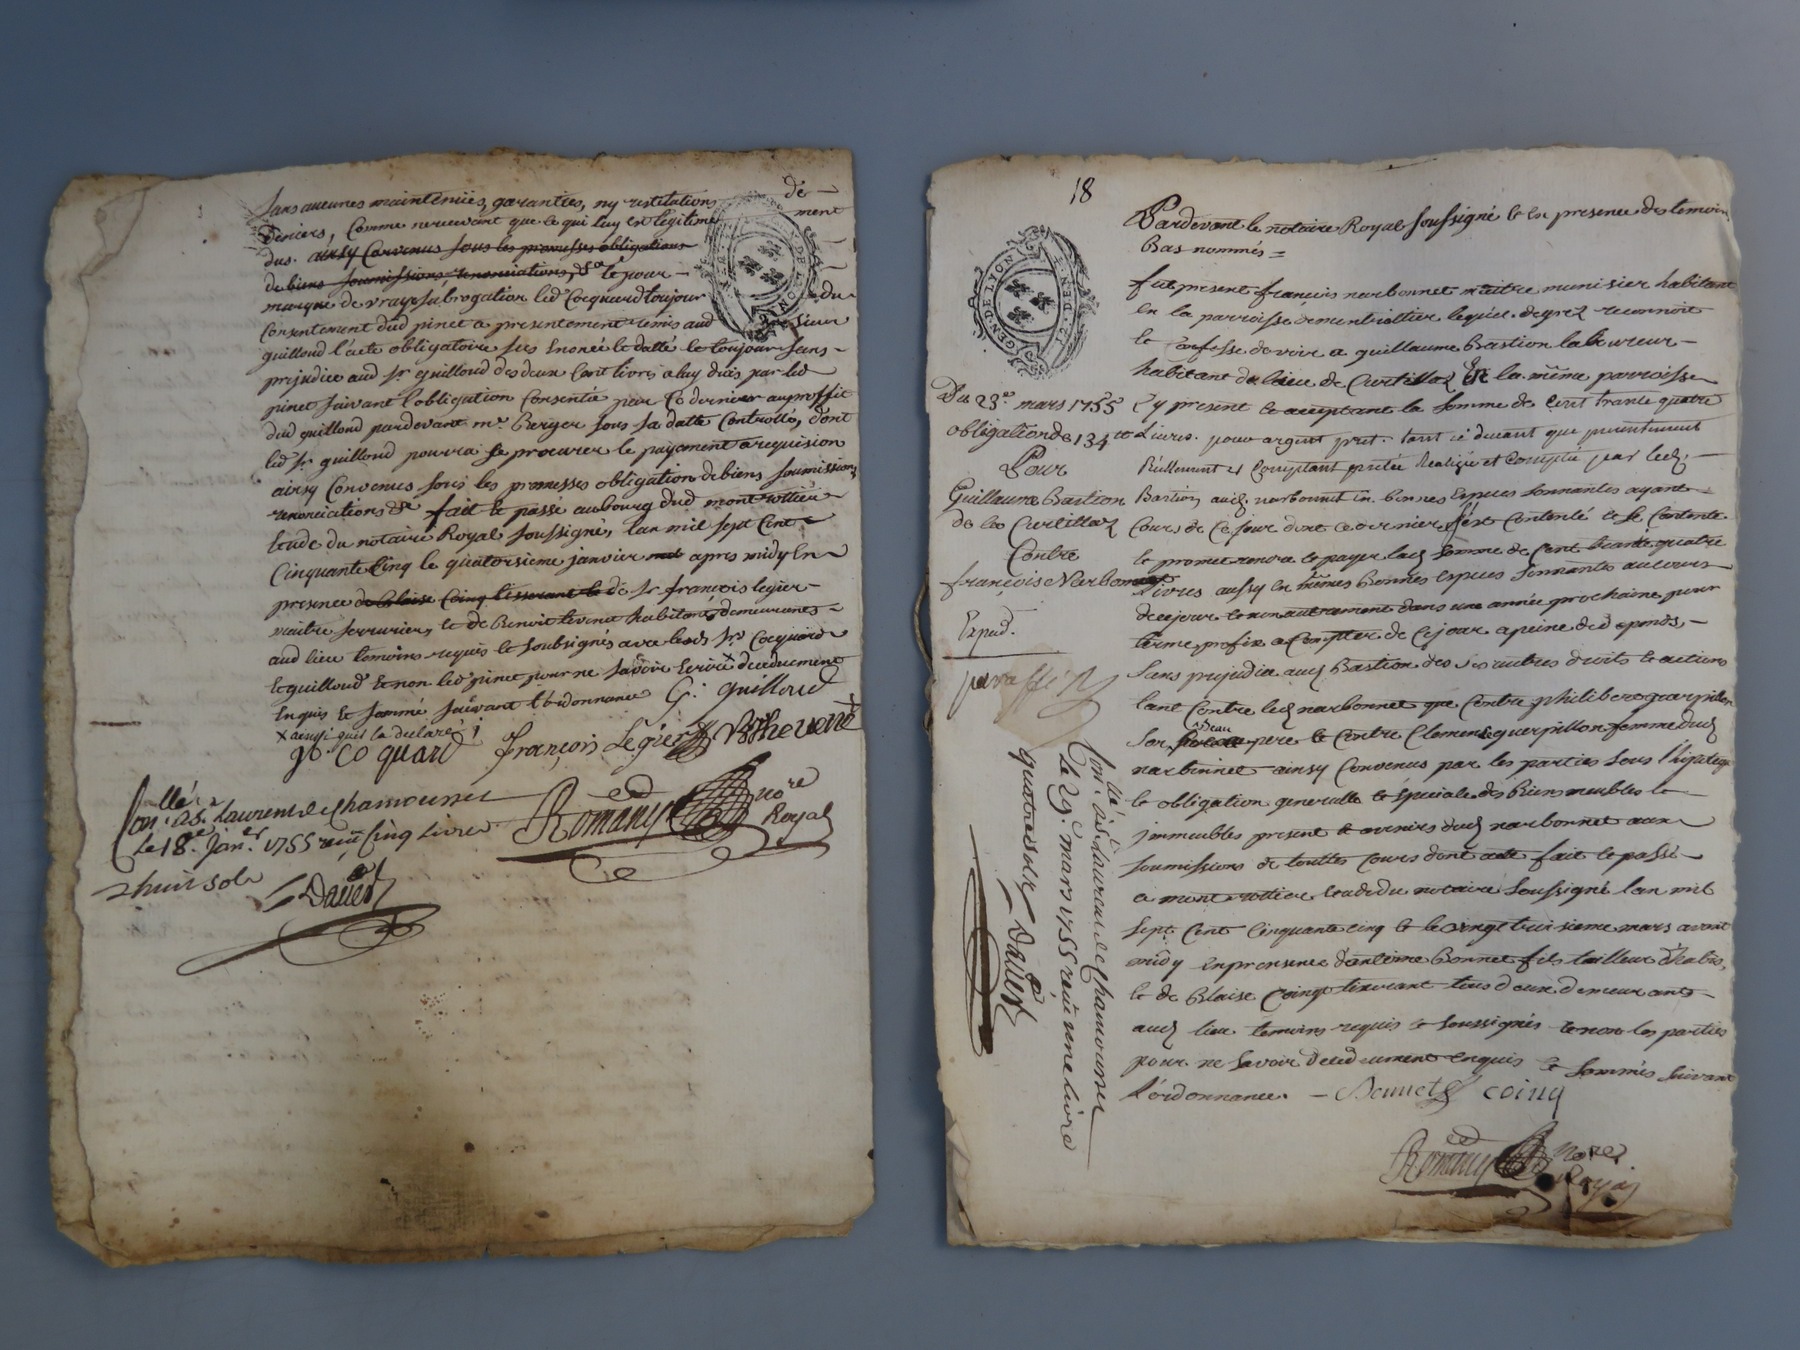 sans aucunes maintenües, garanties, ny restitutions de
deniers, Comme ne recevant que ce qui luy est legitimement
dus. ainsy Convenus sous les promesses obligations
de biens soumissions, renonciations, &a le pour
marque de vraye subrogation led Cocquard toujour du
Consentement dud pinet a presentement remis aud sieur
guilloud l'acte obligatoire sus Enoncé et datté le toujour sans
prejudice aud Sr guilloud des deux Cent livres a luy dües par led
pinet suivant l'obligation Consentie par Ce dernier au proffit
dud guilloud pardevant me Berger sous sa datte Controllé, dont
led Sr guilloud pourra se procurer le payement a requision
ainsy Convenus sous les promesses obligation de biens soumissions
renonciations &a fait et passé au bourg dud montrottier
Etude du notaire Royal soussigné, lan mil sept Cent
Cinquante Cinq le quatorsieme janvier apres midy En
presence de blaise Coing tisserant et de Sr francois legier
maitre serrurier, et de Benoit tevenet habitans, demeurants
aud lieu temoins requis et soubsignés avec lesd Srs Cocquard
et guilloud Et non led pinet pour ne savoir Ecrire x de ce duement
Enquis et sommé suivant l'ordonnance G: guilloud
x ainsy quil la declaré
jo Coquard françois Legier B Thevenet
Conllé: a St Laurent de Chamousset
le 18e. janer. 1755 reçu Cinq Livres
huit sols
Daver
Romany nore
Royal
18
Pardevant le notaire Royal soussigné et En presence des temoins
Bas nommés =
fut present françois narbonnet maitre menisier habitant
en la parroisse de montrottier lequel de gré reconnoit
et Confesse devoir a guillaume Bastion laboureur
habitant du lieu de Curtillaz de la même parroisse
Cy present et acceptant la somme de Cent trante quatre
Livres. pour argent pret. tant cÿ devant que presentement
Réellement et Comptant pretée Realizée et Comptée par led.
Bastion aud. narbonnet En bonnes Especes sonnantes ayant
Cours de Ce jour dont ce dernier s'est Contenté et se Contente
et promet rendre et payer lad somme de Cent trante quatre
Livres aussy en mêmes Bonnes Especes sonnantes au cours
de ce jour et non autrement dans une année prochaine pour
terme prefix a Compter de Ce jour a peine de depends,
sans prejudice aud Bastion de ses autres droits et actions
tant Contre led narbonnet que Contre philibert guerpillon
son beau pere et Contre Clemence guerpillon femme dud
narbonnet ainsy Convenus par les parties sous l'hipoteque
et obligation generalle et speciale des Biens meubles et
jmmeubles present et avenirs dud narbonnet aux
soumissions de touttes Cours dont acte fait et passé
a montrottier etude du notaire soussigné lan mil
sept Cent Cinquante cinq et le vingt troisieme mars avant
midy En presence d'antoine Bonnet fils tailleur d'habits,
et de Blaise Coing tisserant tous deux demeurants
aud lieu temoins requis et soussignés et non les parties
pour ne savoir de ce duement Enquis et sommés suivant
l'ordonnance. Bonnet coing
Romany nore
Royal
GEN. DE LYON
Du 23e. mars 1755
obligation de 134 tt
Pour
Guillaume Bastion
de la Curtillaz
Contre
françois Narbonnet
Exped.
paraffé
Conllé: a St Laurent de Chamousset
le 29e. mars 1755 reçu une Livre
quatre sols Daver